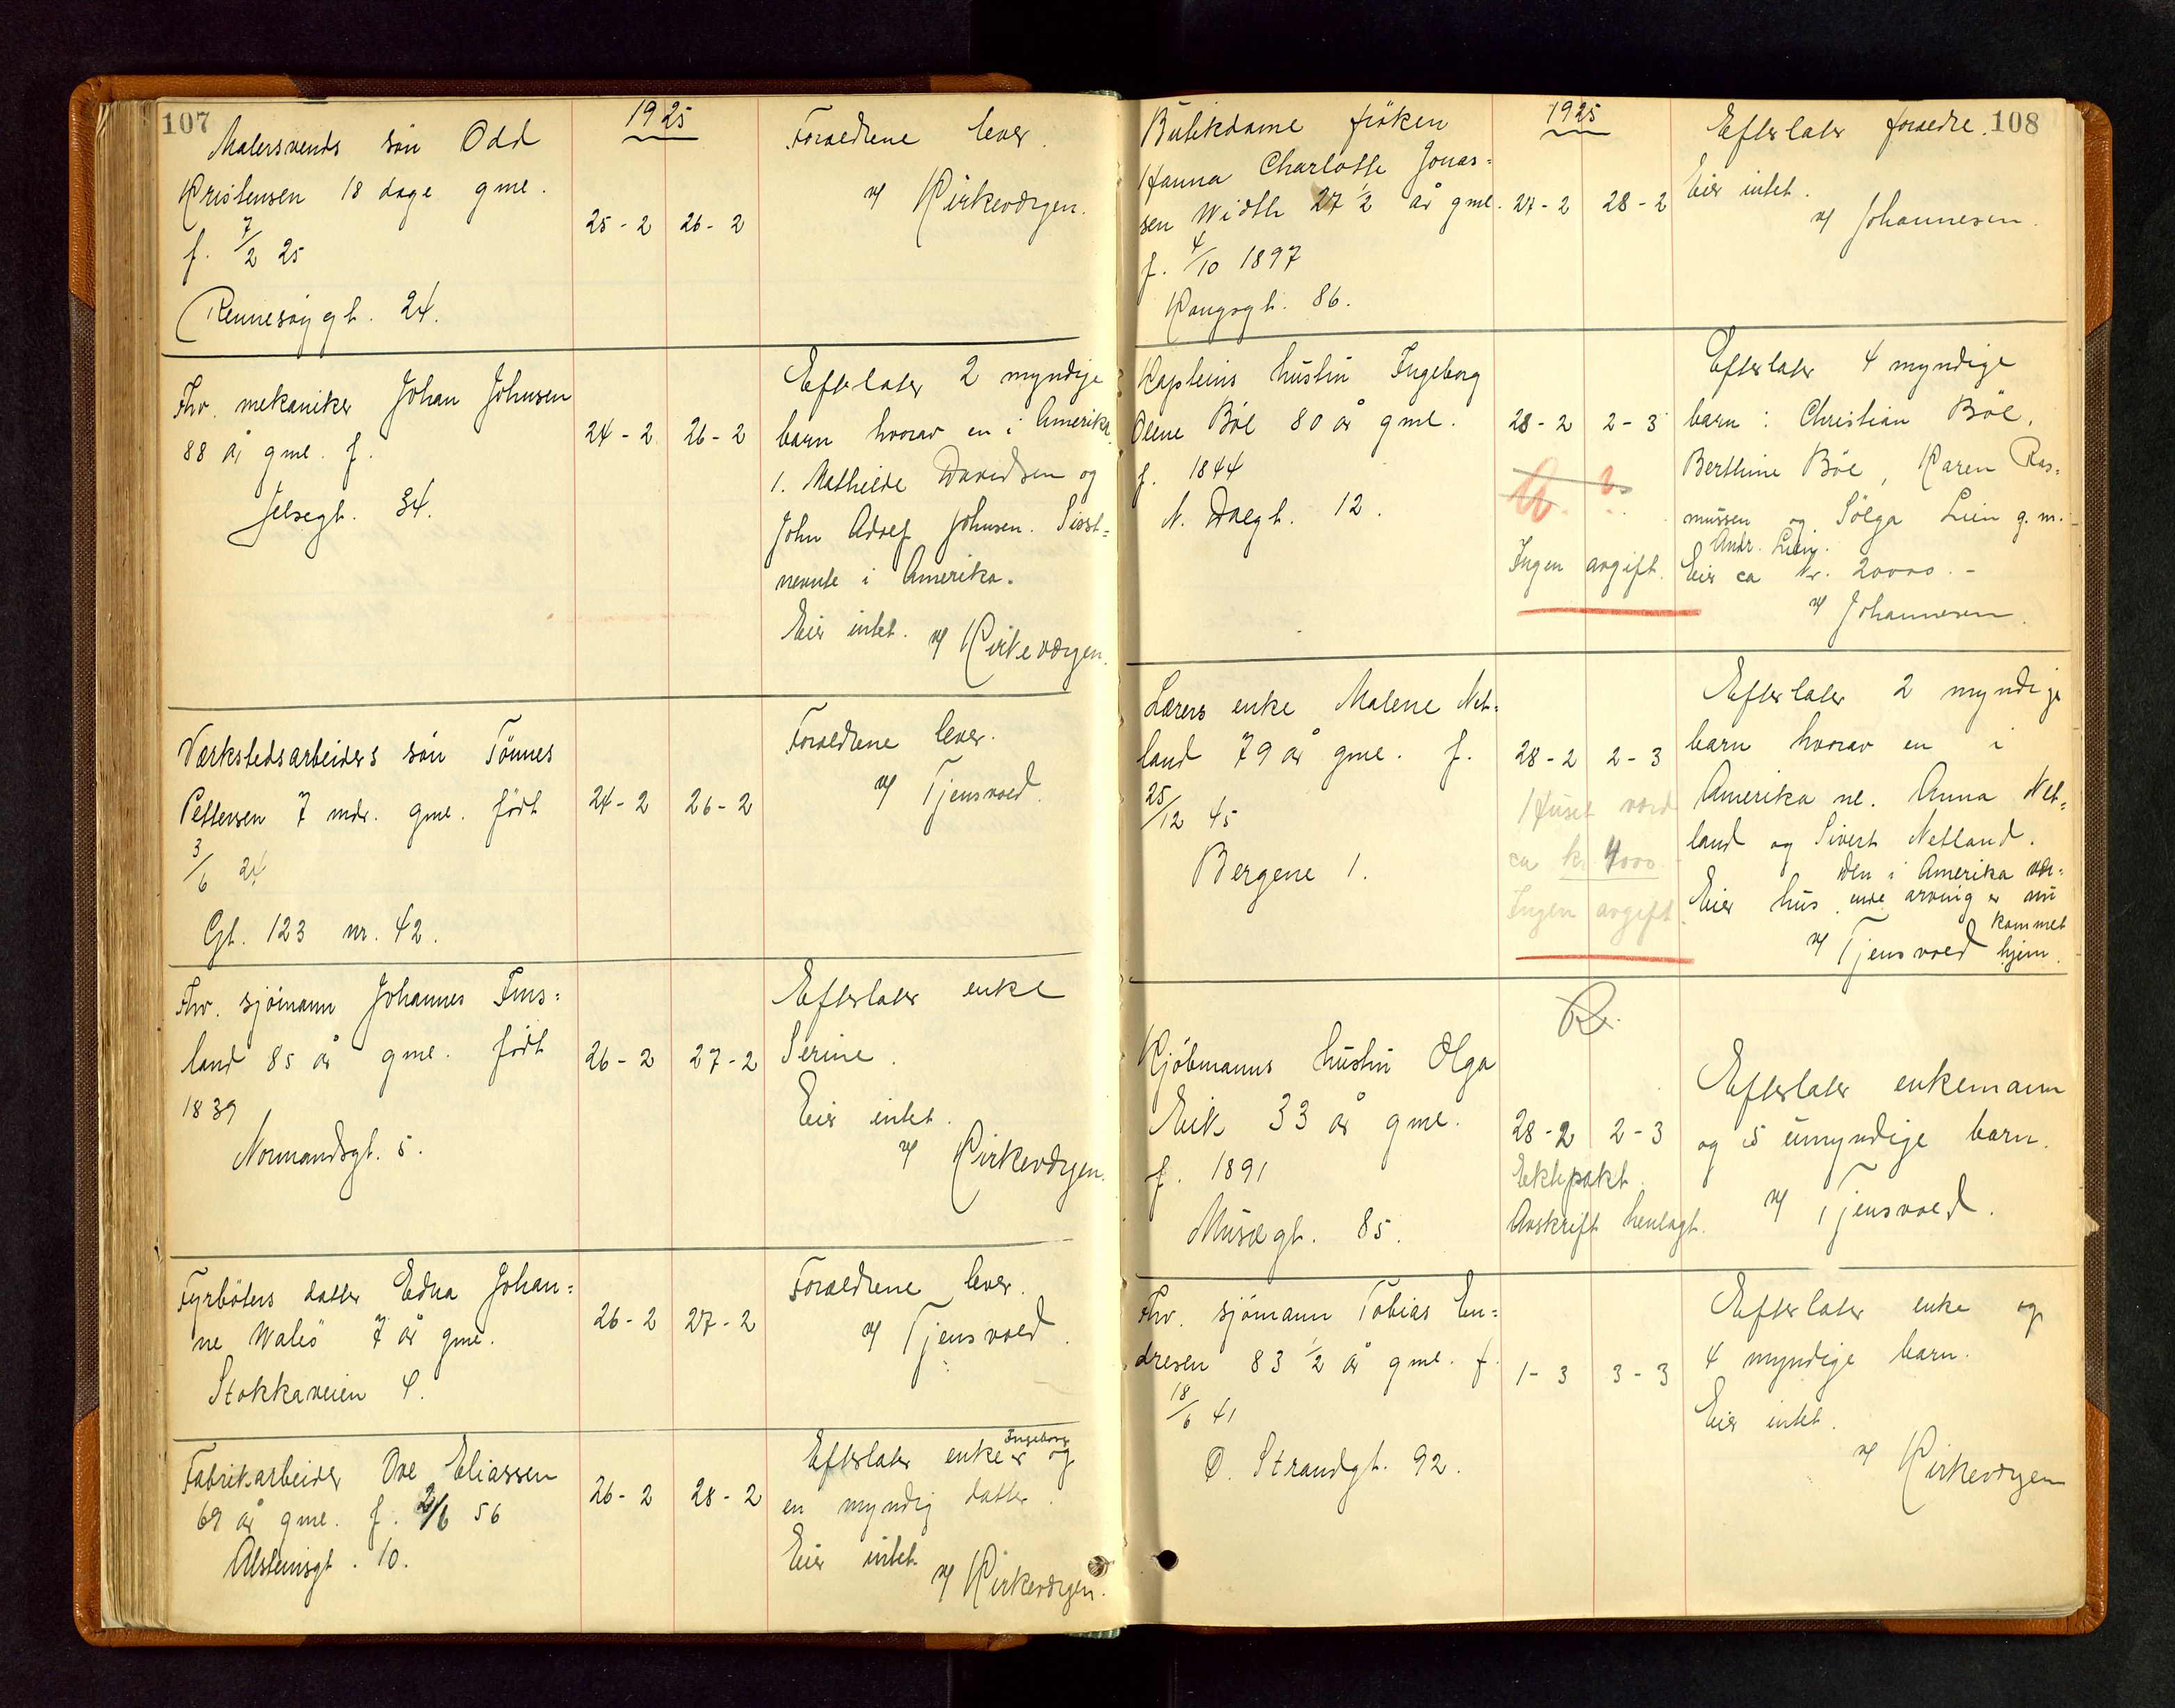 107
1925
Malersvends sön Odd
Kristensen 18 dage gml.
f. 7/2 25
Rennesöygt. 24.
25-2 26-2
Forældrene lever.
v/ Kirkeværgen.
Fhv. mekaniker Johan Johnsen
88 år gml. f.
Jelsegt. 34.
24-2 26-2
Efterlater 2 myndige
barn hvorav en i Amerika.
1. Mathilde Davidsen og
John Adolf Johnsen. Sisst-
nevnte i Amerika.
Eier intet. v/ Kirkeværgen.
Værkstedsarbeiders sön Tönnes
Pettersen 7 mdr. gml. födt
3/6 24
Gt. 123 nr. 42.
24-2 26-2
Forældrene lever.
v/ Tjensvold.
Fhv. sjömann Johannes Fins=
land 85 år gml. födt
1839
Normandsgt. 5.
26-2 27-2
Efterlater enke
Serine.
Eier intet.
v/ Kirkeværgen.
Fyrböters datter Edna Johan=
ne Walsö 7 år gml.
Stokkaveien 4.
26-2 27-2
Forældrene lever.
v/ Tjensvold.
Fabrikarbeider Ove Eliassen
69 år gml. f. 2/6 56
Alsteinsgt. 10.
26-2 28-2
Ingeborg
Efterlater enke og
en myndig datter.
Eier intet.
v/ Kirkeværgen.
108
1925
Butikdame fröken
Hanna Charlotte Jonas=
sen Width 27 1/2 år gml.
f. 4/10 1897
Kongsgt. 86.
27-2 28-2
Efterlater forældre.
Eier intet.
v/ Johannesen.
Kapteins hustru Ingeborg
Olene Böe 80 år gml.
f. 1844
N. Dalgt. 12.
28-2 2-3
Ingen avgift.
Efterlater 4 myndige
barn: Christian Böe,
Berthine Böe, Karen Ras=
mussen og Sölga Lein g.m.
Andr. Lein.
Eier ca kr. 20000.-
v/ Johannesen.
Lærers enke Malene Net=
land 79 år gml. f.
25/12 45
Bergene 1.
28-2 2-3
Huset værd
ca kr. 4000
Ingen avgift.
Efterlater 2 myndige
barn hvorav en i
Amerika nl. Anna Net=
land og Sivert Netland.
Den i Amerika vær=
Eier hus. ende arving er nu
kommet
v/ Tjensvold hjem.
R.
Kjöbmanns hustru Olga
Eik 33 år gml.
f. 1891
Muségt. 85.
28-2 2-3
Ektepakt.
Avskrift henlagt.
Efterlater enkemann
og 5 umyndige barn.
v/ Tjensvold.
Fhv. sjömann Tobias En=
dresen 83 1/2 år gml. f.
18/6 41
Ö. Strandgt. 92.
1-3 3-3
Efterlater enke og
4 myndige barn.
Eier intet.
v/ Kirkeværgen